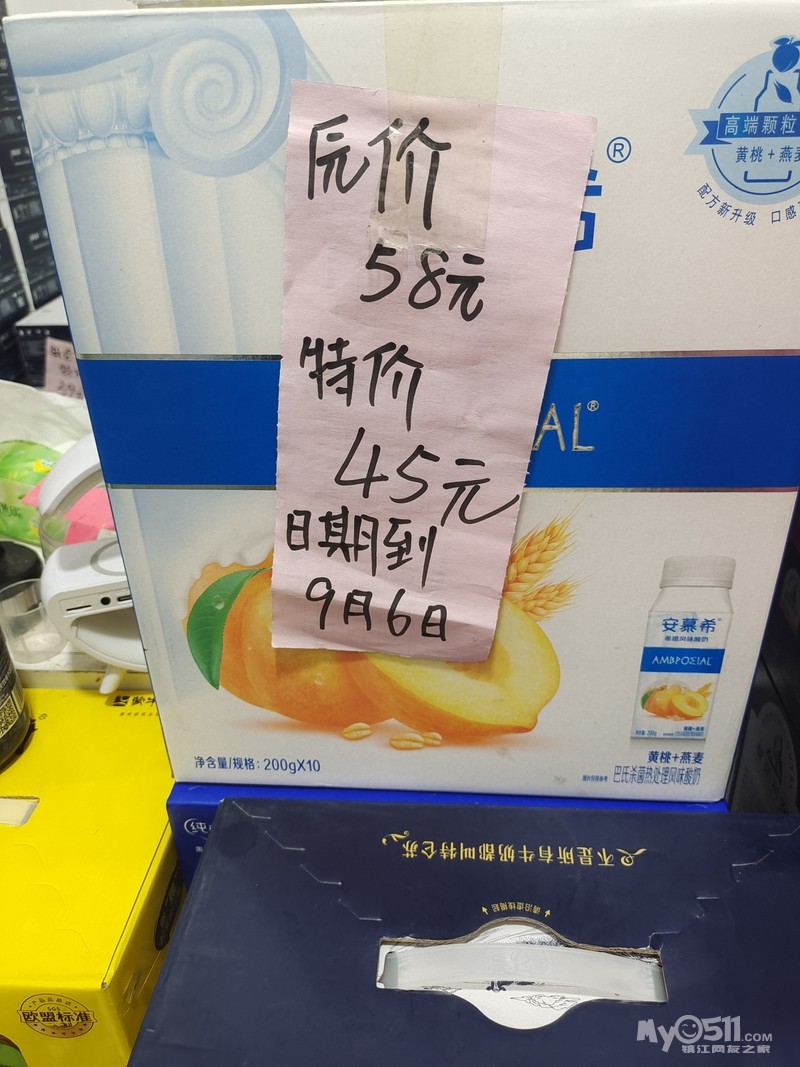 厉价
58元
特价
45元
日期到
9月6日
®
高端颗粒
黄桃+燕麦
配方新升级 口感
AL®
安慕希
希腊风味酸奶
AMBPOΣIAL
黄桃+燕麦
巴氏杀菌热处理风味酸奶
净含量/规格: 200gX10
不是所有牛奶都叫特仑苏
请沿虚线撕起
SGS
欧盟标准
My0511.COM
镇江网友之家